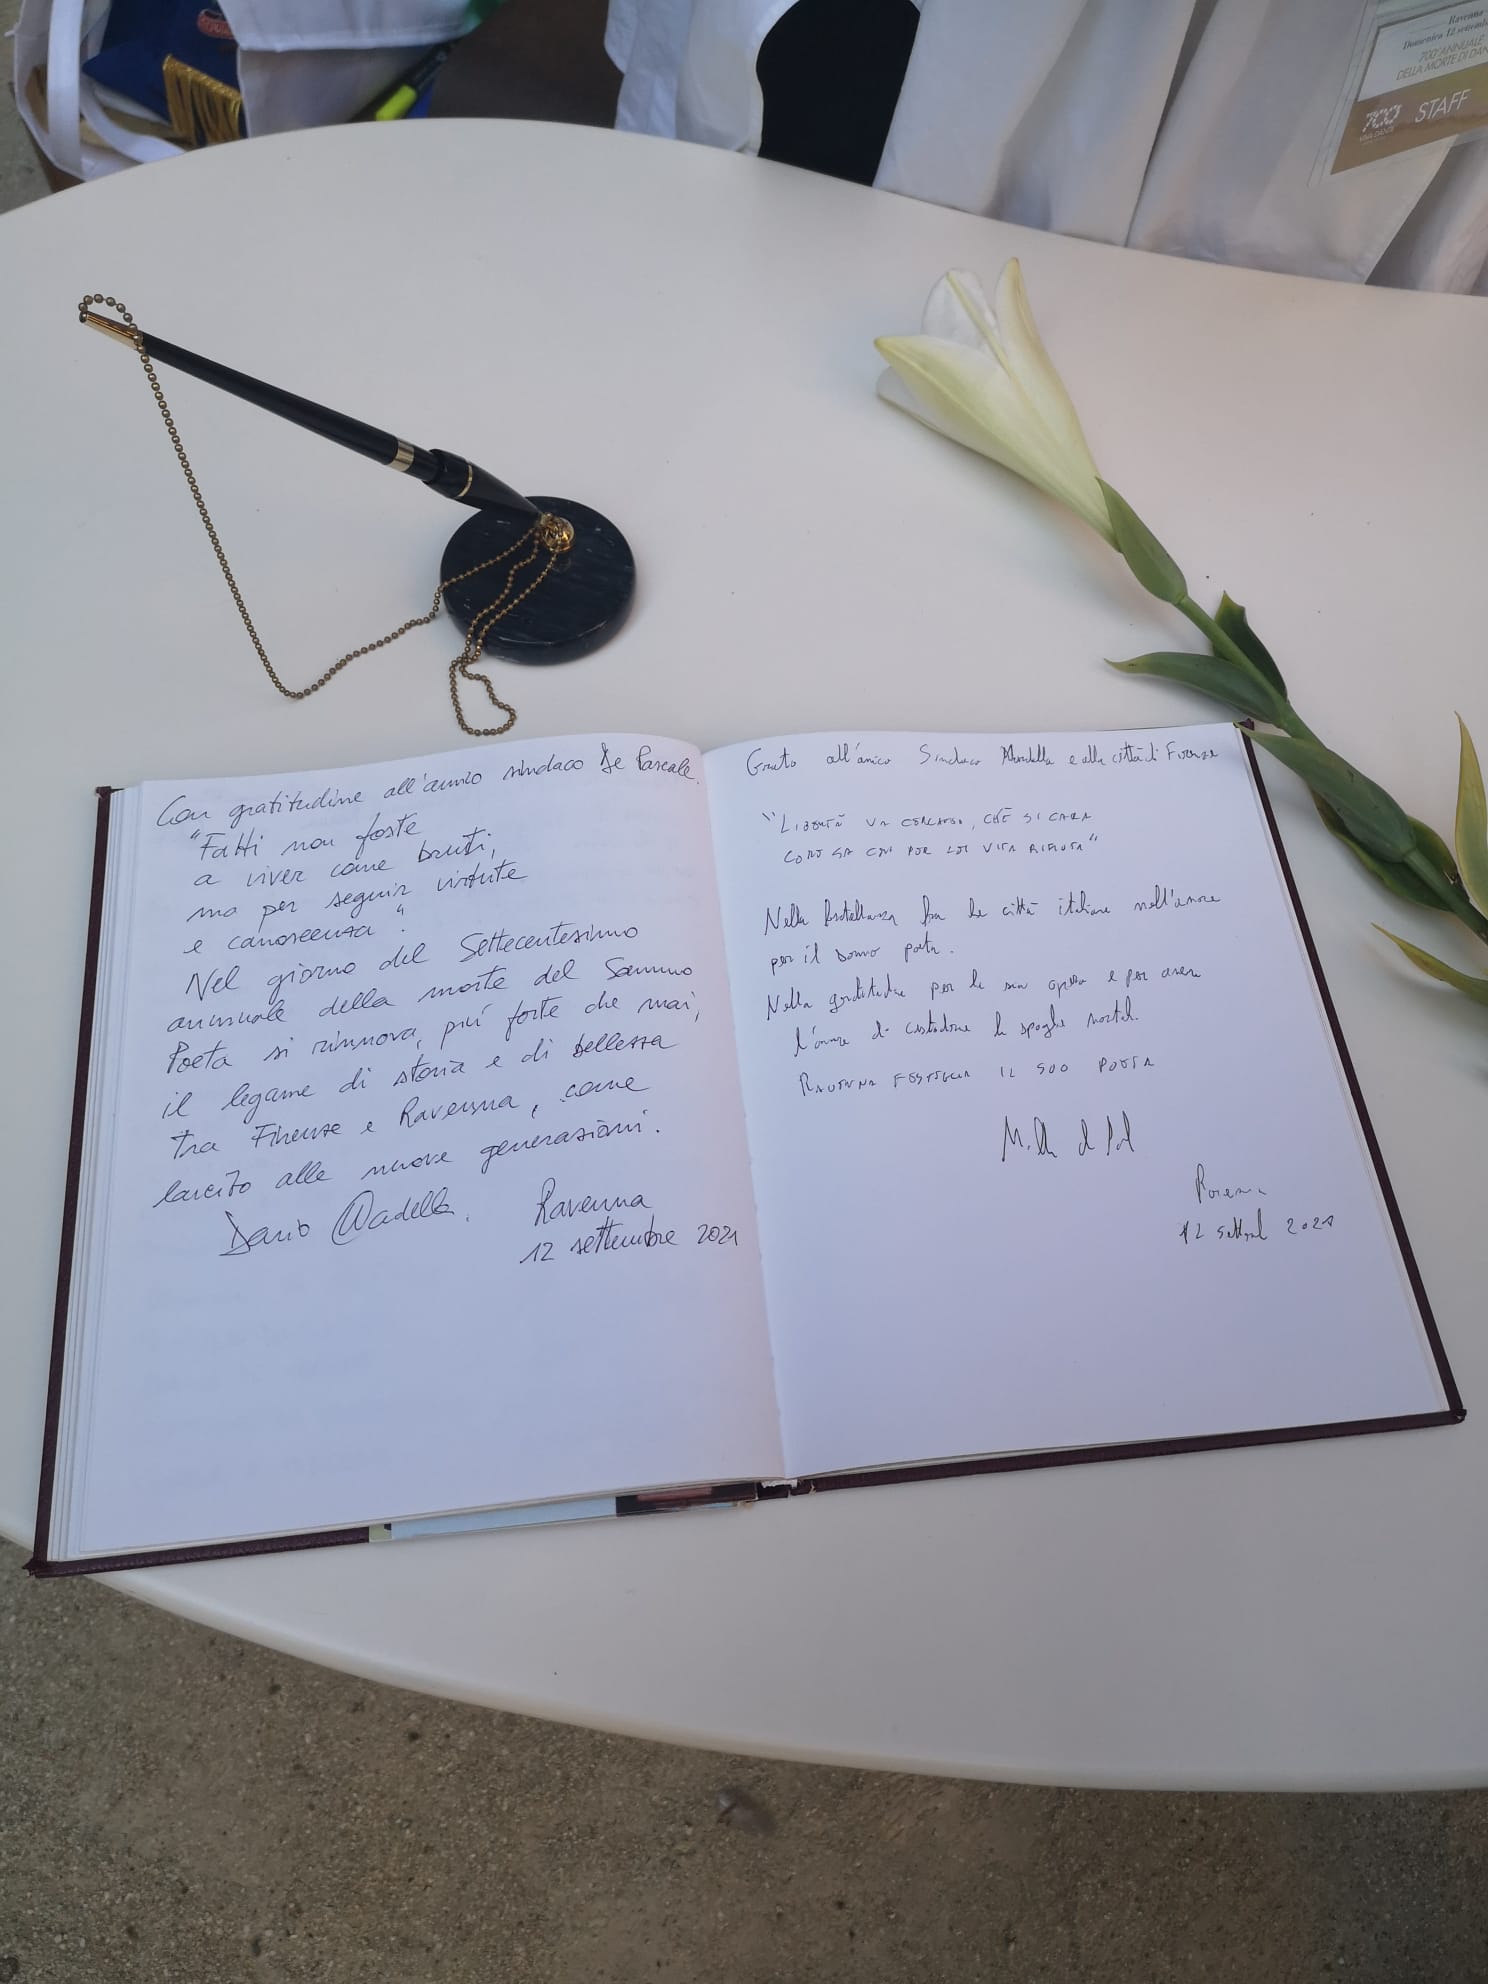 Ravenna
Domenica 12 settemb
700° ANNUALE
DELLA MORTE DI DAN
700
VIVA DANTE
STAFF
Con gratitudine all'amico sindaco De Pascale.
"Fatti non foste
a viver come bruti,
ma per seguir virtute
e canoscenza".
Nel giorno del Settecentesimo
annuale della morte del Sommo
Poeta si rinnova, più forte che mai,
il legame di storia e di bellezza
tra Firenze e Ravenna, come
lascito alle nuove generazioni.
Dario Nardella.
Ravenna
12 settembre 2021
Grato all'amico Sindaco Nardella e alla città di Firenze
"Libertà va cercando, ch'è sì cara
come sa chi per lei vita rifiuta"
Nella fratellanza fra le città italiane nell'amore
per il sommo poeta.
Nella gratitudine per la sua opera e per avere
l'onore di custodirne le spoglie mortali.
RAVENNA FESTEGGIA IL SUO POETA
Ravenna
12 settembre 2021